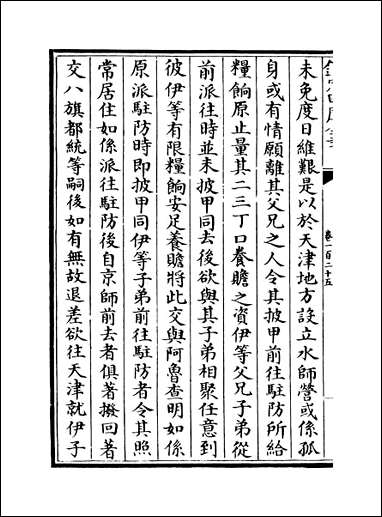 欽定四庫全書
卷一百二十五
未免度日維艱是以於天津地方設立水師營或係孤
身或有情願離其父兄之人令其披甲前往駐防所給
糧餉原止量其二三丁口養贍之資伊等父兄子弟從
前派往時並未披甲同去後欲與其子弟相聚任意到
彼伊等有限糧餉安足養贍將此交與阿魯查明如係
原派駐防時即披甲同伊等子弟前往駐防者令其照
常居住如係派往駐防後自京師前去者俱著撥回著
交八旗都統等嗣後如有無故退差欲往天津就伊子